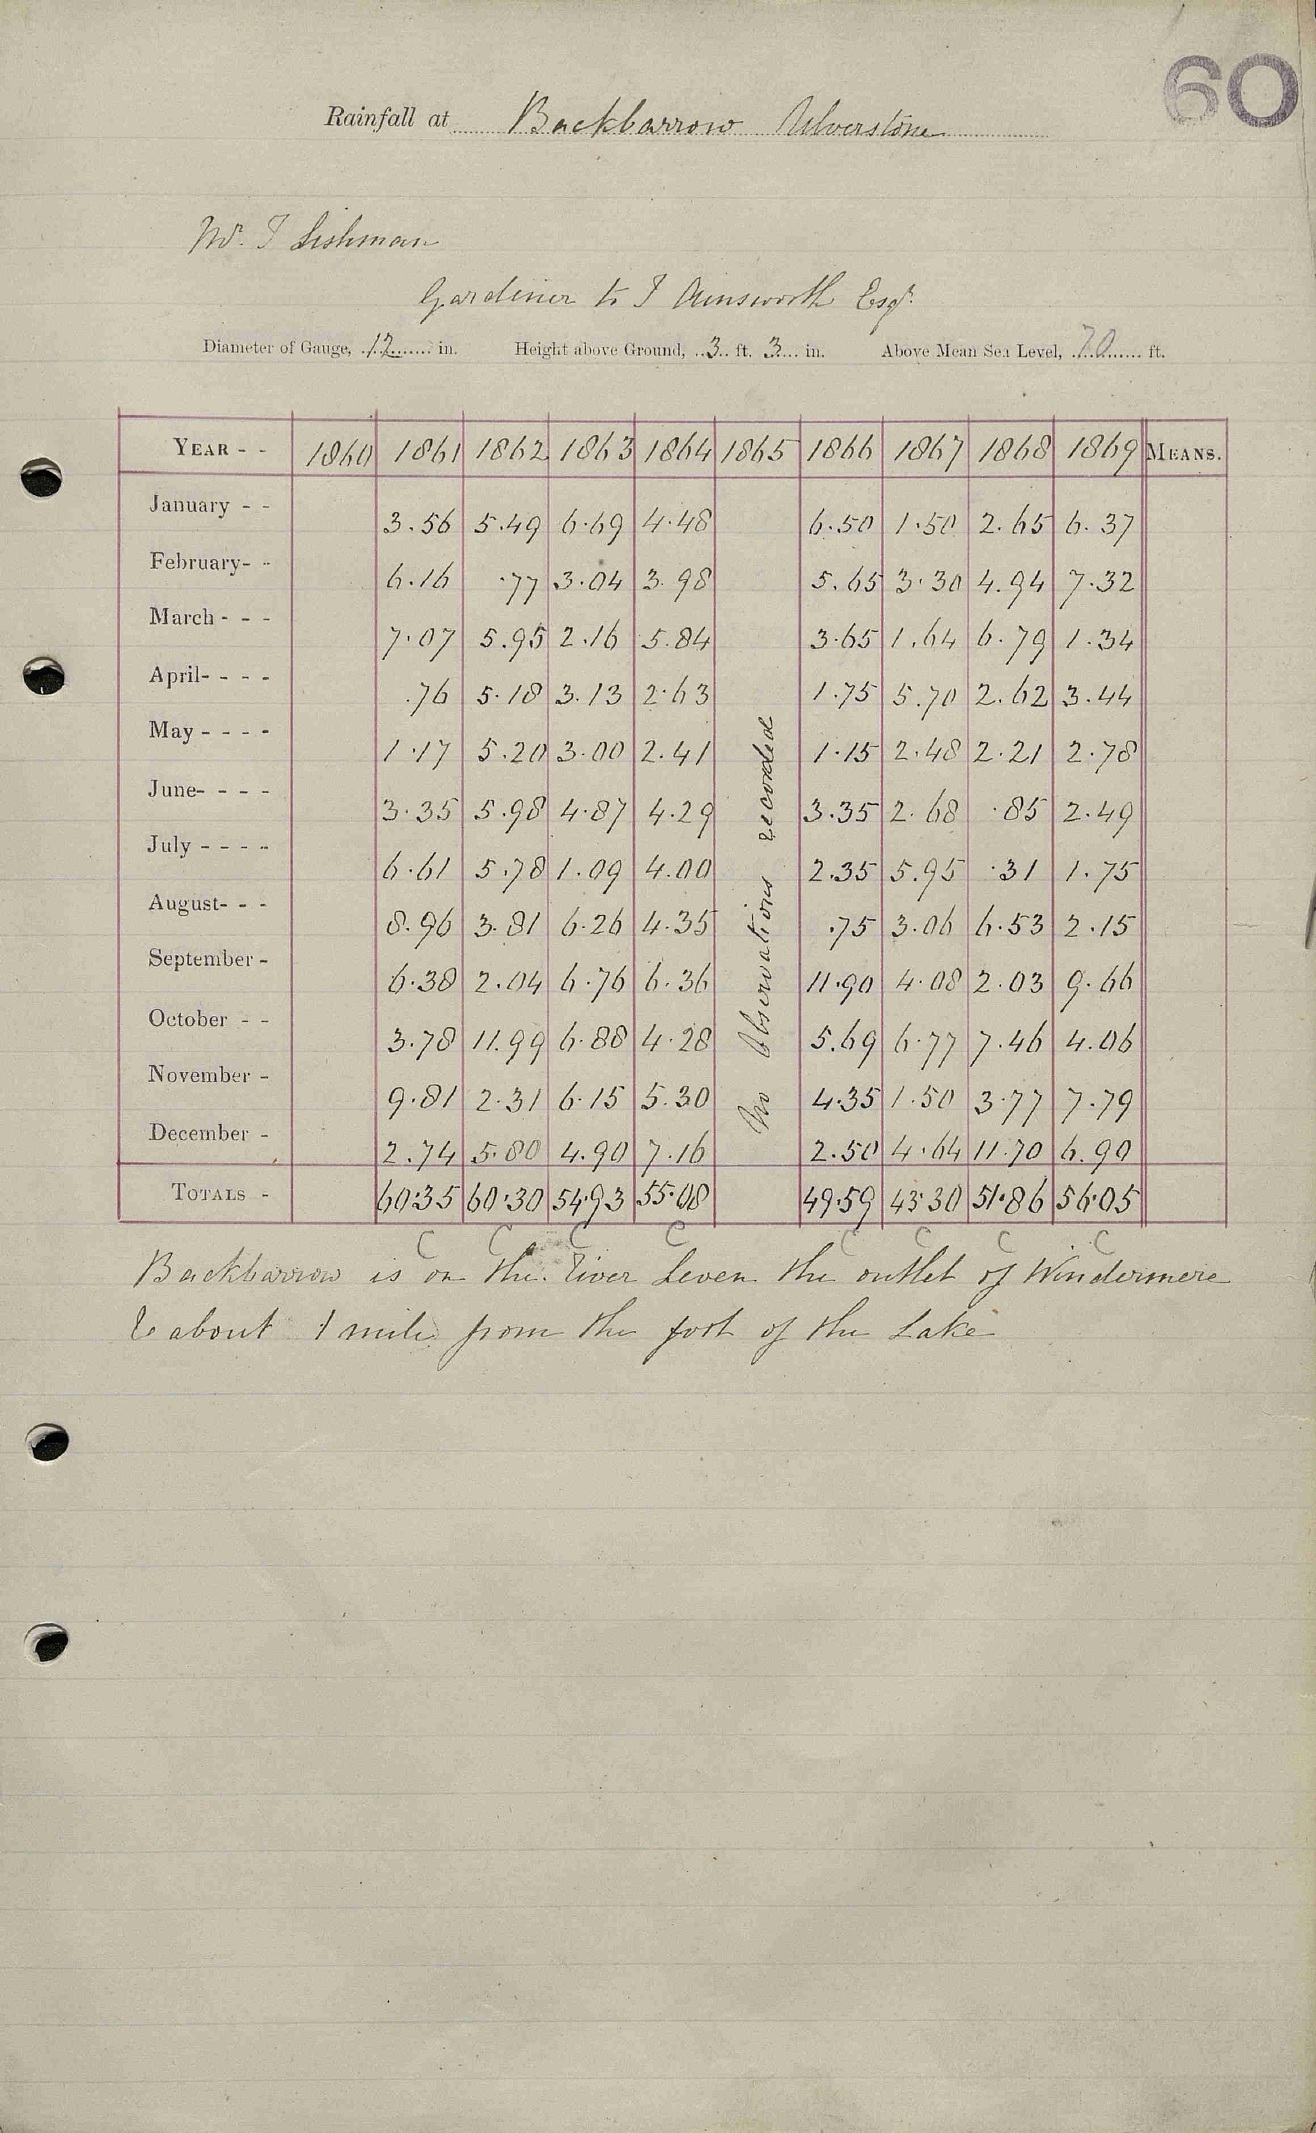 60
Rainfall at Backbarrow Ulverstone
Mr. J Lishman
Gardiner to J Ainsworth Esqr.
Diameter of Gauge, 12 in. Height above Ground, 3 ft. 3 in. Above Mean Sea Level, 70 ft.
YEAR - - 1860 1861 1862 1863 1864 1865 1866 1867 1868 1869 MEANS.
January - - 3.56 5.49 6.69 4.48 6.50 1.50 2.65 6.37
February - - 6.16 .77 3.04 3.98 5.65 3.30 4.94 7.32
March - - - 7.07 5.95 2.16 5.84 3.65 1.64 6.79 1.34
April - - - - .76 5.18 3.13 2.63 1.75 5.70 2.62 3.44
May - - - - 1.17 5.20 3.00 2.41 1.15 2.48 2.21 2.78
June - - - - 3.35 5.98 4.87 4.29 3.35 2.68 .85 2.49
July - - - - 6.61 5.78 1.09 4.00 2.35 5.95 .31 1.75
August - - - 8.96 3.81 6.26 4.35 .75 3.06 6.53 2.15
September - 6.38 2.04 6.76 6.36 11.90 4.08 2.03 9.66
October - - 3.78 11.99 6.88 4.28 5.69 6.77 7.46 4.06
November - 9.81 2.31 6.15 5.30 4.35 1.50 3.77 7.79
December - 2.74 5.80 4.90 7.16 2.50 4.64 11.70 6.90
No Observations recorded
TOTALS - 60.35 60.30 54.93 55.08 49.59 43.30 51.86 56.05
C C C C C C C C
Backbarrow is on the River Leven the outlet of Windermere
& about 1 mile from the foot of the Lake